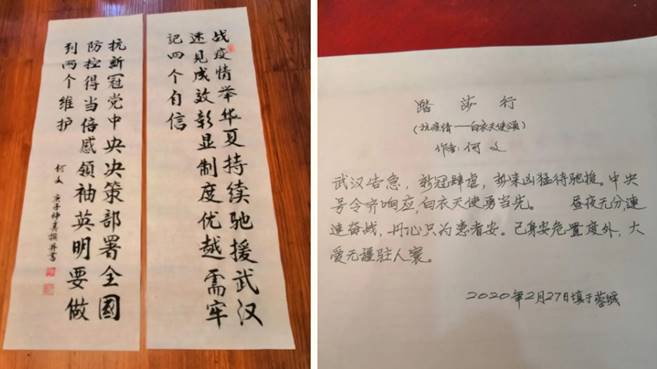 战疫情举华夏持续驰援武汉
速见成效彰显制度优越需牢
记四个自信
抗新冠党中央决策部署全国
防控得当倍感领袖英明要做
到两个维护
何文 庚子仲春撰并书
踏莎行
(抗疫情——白衣天使颂)
作者:何文
武汉告急，新冠肆虐，势来凶猛待驰援。中央
号令齐响应，白衣天使勇当先。 昼夜无分连
连奋战，丹心只为患者安。己身安危置度外，大
爱无疆驻人寰。
2020年2月27日填于蓉城